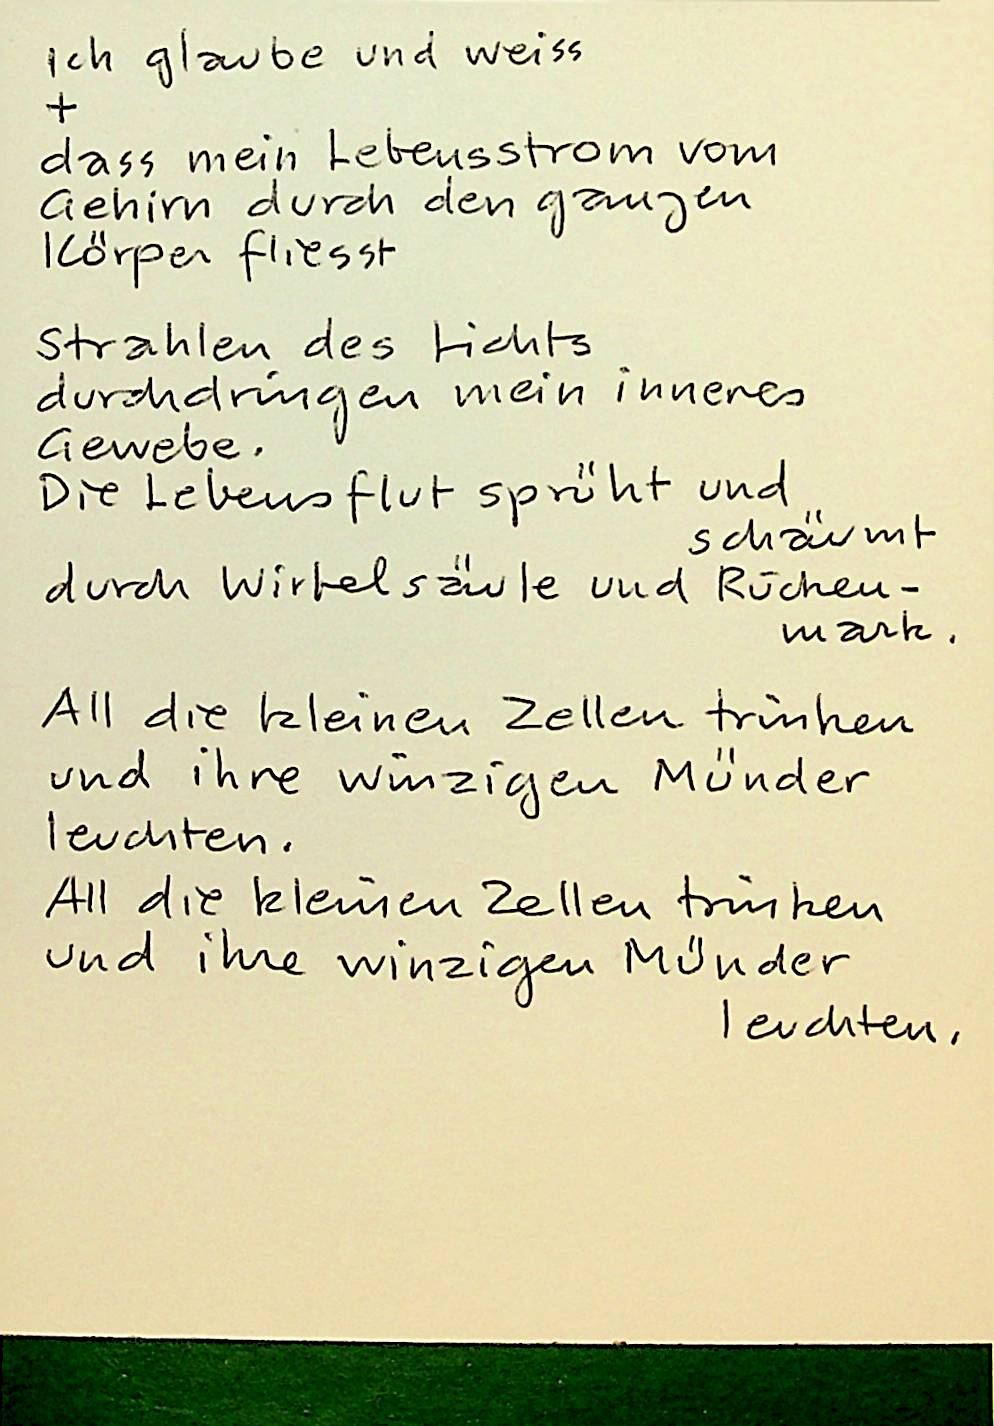 Ich glaube und weiss
+
dass mein Lebensstrom vom
Gehirn durch den ganzen
Körper fliesst
Strahlen des Lichts
durchdringen mein inneres
Gewebe.
Die Lebensflut sprüht und
schäumt
durch Wirbelsäule und Rücken-
mark.
All die kleinen Zellen trinken
und ihre winzigen Münder
leuchten.
All die kleinen Zellen trinken
und ihre winzigen Münder
leuchten.